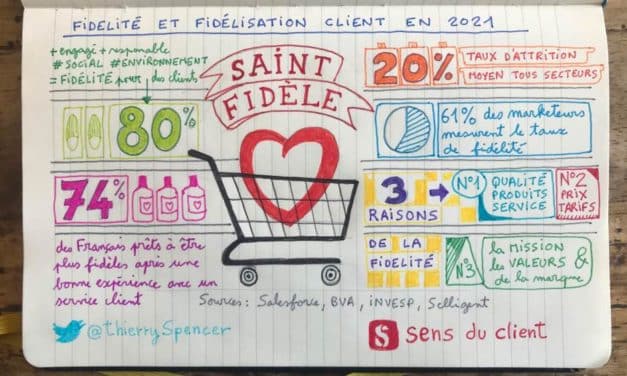 FIDELITÉ ET FIDÉLISATION CLIENT EN 2021
+ engagé + responsable
# SOCIAL # ENVIRONNEMENT
= FIDÉLITÉ pour des clients
80%
74%
des Français prêts à être
plus fidèles après une
bonne expérience avec un
service client
SAINT
FIDÈLE
20%
TAUX D'ATTRITION
MOYEN TOUS SECTEURS
61% des marketeurs
mesurent le taux
de fidélité
3
RAISONS
DE LA
FIDELITÉ
N°1
QUALITÉ
PRODUITS
SERVICE
N°2
PRIX
TARIFS
N°3
la MISSION
les VALEURS &
de la marque
Sources : Salesforce, BVA, iNVESP, Selligent
@thierrySpencer
S sens du client